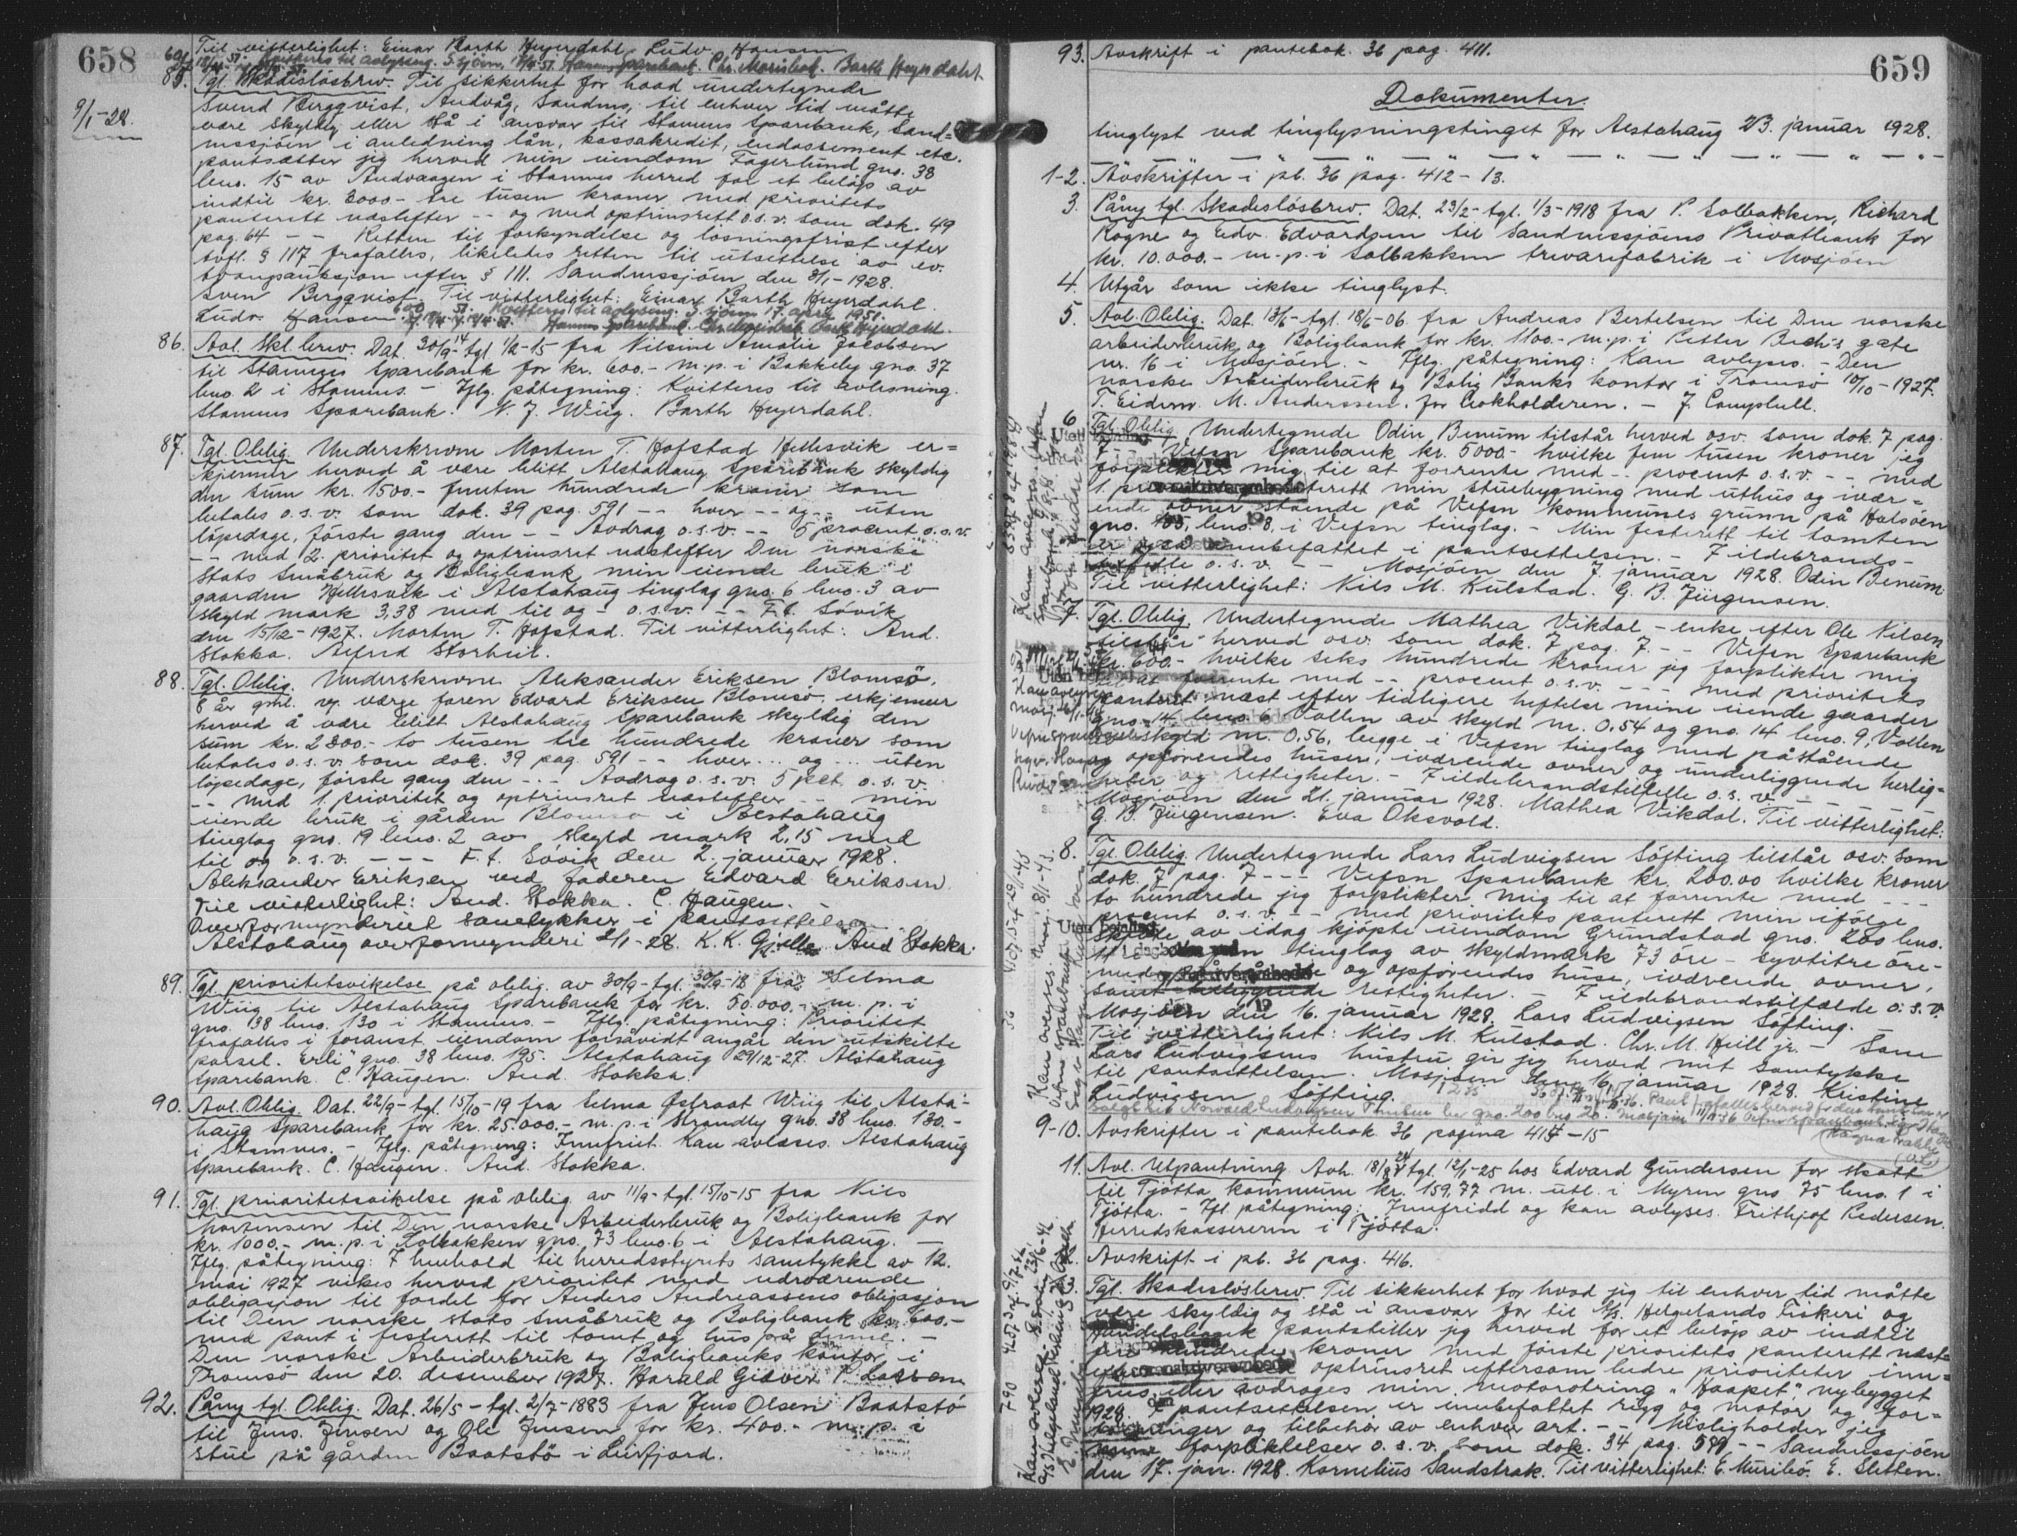 658
Til vitterlighet: Einar Barth Heyerdahl. Ludv. Hansen
Kvitteres til avlysning. S.sjöen. Chr. Barth Heyerdahl
9/1-28.
85. Tgl. Skadeslösbrev. Til sikkerhet for hvad undertegnede
Svend Bergqvist, Andvåg, Sandnes, til enhver tid måtte
være skyldig eller stå i ansvar til Stamnes Sparebank, Sand=
nessjöen i anledning lån, kassakredit, endossement etc.
pantsætter jeg herved min eiendom Fagerlund gno. 38
bno. 15 av Andvaagen i Stamnes herred for et belöp av
indtil kr. 3000.- tre tusen kroner med prioritets
panterett næstefter -- og med optrinsrett o.s.v. som dok. 49
pag. 64 -- Retten til forkyndelse og lösningsfrist efter
tvfl. § 117 frafalles, likeledes retten til utsettelse av ev.
tvangsauksjon efter § 111. Sandnessjöen den 3/1-1928.
Sven Bergqvist. Til vitterlighet: Einar Barth Heyerdahl.
Ludv. Hansen. Kvitteres til avlysing. S.sjöen 17. april 1951.
86. Avl. Skl. brev. Dat. 30/9-14 tgl. 1/2-15 fra Nilsine Amalie Jacobsen
til Stamnes Sparebank for kr. 600.- m.p. i Bakkeby gno. 37
bno. 2 i Stamnes. - Iflg. påtegning: Kvitteres til avlesning.
Stamnes Sparebank. N. J. Wiig. Barth Heyerdahl.
87. Tgl. Oblig. Underskrevne Morten T. Hofstad Hellesvik er=
kjenner herved å være blitt Alstahaug Sparebank skyldig
den sum kr. 1500.- femten hundrede kroner som
betales o.s.v. som dok. 39 pag. 591 -- hver -- og -- uten
löpedage, förste gang den -- Avdrag o.s.v. -- 5 procent o.s.v.
-- med 2. prioritet og optrinsret næstefter Den norske
Stats Småbruk og Boligbank min eiende bruk i
gaarden Hellesvik i Alstahaug tinglag gno. 6 bno. 3 av
skyld mark 3,38 med til og - o.s.v. -- F.t. Sövik
den 15/12-1927. Morten T. Hofstad. Til vitterlighet: And.
Stokka. Alfred Storheil.
88. Tgl. Oblig. Underskrevne Aleksander Eriksen Blomsö,
8 år gml. vg. værge faren Edvard Eriksen Blomsö, erkjenner
herved å være blitt Alstahaug Sparebank skyldig den
sum kr. 2300.- to tusen tre hundrede kroner som
betales o.s.v. som dok. 39 pag. 591 -- hver -- og -- uten
löpedage, förste gang den -- Avdrag o.s.v. 5 pct. o.s.v.
-- med 1. prioritet og optrinsret næstefter -- min
eiende bruk i gården Blomsö i Alstahaug
tinglag gno. 19 bno. 2 av skyld mark 2,15 med
til og o.s.v. --- F.t. Sövik den 2. januar 1928.
Aleksander Eriksen ved faderen Edvard Eriksen.
Til vitterlighet: And. Stokka. C. Haugen. -
Overformynderiet samtykker i pantsettelsen
Alstahaug overformynderi 2/1-28. K. K. And. Stokka.
89. Tgl. prioritetsvikelse på oblig. av 30/9- tgl. 30/9-18 fra Selma
Wiig til Alstahaug Sparebank for kr. 50.000.- m.p. i
gno. 38 bno. 130 i Stamnes. - Iflg. påtegning: Prioritet
frafalles i foranst. eiendom forsåvidt angår den utskilte
parsel. "Erli" gno. 38 bno. 195. Alstahaug 29/12-27. Alstahaug
Sparebank. C. Haugen. And. Stokka.
90. Avl. Oblig. Dat. 22/9- tgl. 15/10-19 fra Selma Wiig til Alsta=
haug Sparebank for kr. 25.000.- m.p. i Strandby gno. 38 bno. 130.-
i Stamnes. - Iflg. påtegning: Innfriet. Kan avleses. Alstahaug
Sparebank. C. Haugen. And. Stokka.
91. Tgl. prioritetsvikelse på oblig. av 11/9- tgl. 15/10-15 fra Nils
Mortensen til Den norske Arbeiderbruk og Boligbank for
kr. 1000.- m.p. i Solbakken gno. 73 bno. 6 i Alstahaug. -
Iflg. påtegning: I henhold til herredsstyrets samtykke av 12.
mai 1927 vikes herved prioritet med nærværende
obligasjon til fordel for Anders Andreassens obligasjon
til Den norske stats småbruk og Boligbank kr. 600.-
med pant i festerett til tomt og hus på denne. -
Den norske Arbeiderbruk og Boligbanks kontor i
Tromsö den 20. desember 1927. Harald Giæver. P. Larssen
92. Påny tgl. Oblig. Dat. 26/5- tgl. 2/7-1883 fra Jens Olsen Baatstö
til Jens Jensen og Ole Jensen for kr. 400.- m.p. i
stue på gården Baatstö i Leirfjord.
659
93. Avskrift i pantebok. 36 pag. 411.
Dokumenter.
tinglyst ved tinglysningstinget for Alstahaug 23. januar 1928.
1-2. Avskrifter i pb. 36 pag. 412-13.
3. Påny tgl. Skadeslösbrev. Dat. 23/2- tgl. 1/3-1918 fra P. Solbakken, Richard
Rogne og Edv. Edvardsen til Sandnessjöens Privatbank for
kr. 10.000.- m.p. i Solbakken trevarefabrik i Mosjöen
4. Utgår som ikke tinglyst.
5. Avl. Oblig. Dat. 13/6- tgl. 18/6-06 fra Andreas Bertelsen til Den norske
arbeiderbruk og Boligbank for kr. 1100.- m.p. i Petter Bech's gate
nr. 16 i Mosjöen - Iflg. påtegning: Kan avlyses. - Den
norske Arbeiderbruk og Bolig Banks kontor i Tromsö 10/10-1927.
T. Eidem. M. Anderssen. for bokholderen. - J. Campbell.
6. Tgl. Oblig. Undertegnede Odin Benum tilstår herved osv. som dok. 7 pag.
7 -- Vefsn Sparebank kr. 5000.- hvilke fem tusen kroner jeg
forplikter mig til at forrente med - procent o.s.v. -- med
1. panterett min stuebygning med uthus og ivær=
ende ovner stående på Vefsn kommunes grunn på Halsöen
gno. 103, bno. 8, i Vefsn tinglag. - Min festerett til tomten
er også innbefattet i pantsettelsen. - I ildebrands-
tilfelle o.s.v. -- Mosjöen den 7. januar 1928. Odin Benum.
Til vitterlighet: Nils M. Kulstad. G. B. Jürgensen.
7. Tgl. Oblig. Undertegnede Mathea Vikdal - enke efter Ole Nilsen
tilstår herved osv. som dok. 7 pag. 7 -- Vefsn Sparebank
kr. 600.- hvilke seks hundrede kroner jeg forplikter mig
til at forrente med -- procent o.s.v. --- med prioritets
panteret næst efter tidligere heftelser mine eiende gaarder
gno. 14 bno. 6 Vollen av skyld m. 0,54 og gno. 14 bno. 9, Vollen
av skyld m. 0,56, begge i Vefsn tinglag med påstående
og opförendes huser, iværende ovner og underliggende herlig=
heter og rettigheter. - I ildebrandstilfelle o.s.v. --
Mosjöen den 21. januar 1928. Mathea Vikdal. Til vitterlighet:
G. B. Jürgensen. Eva Oksvold.
8. Tgl. Oblig. Undertegnede Lars Ludvigsen Söfting tilstår osv. som
dok. 7 pag. 7 --- Vefsn Sparebank kr. 200.00 hvilke kroner
to hundrede jeg forplikter mig til at forrente med ---
procent o.s.v. -- med prioritets panterett min ifölge
skjöte av idag kjöpte eiendom Grundstad gno. 200 bno.
11 i Vefsn tinglag av skyldmark 73 öre - syvtitre öre -
med påstående og opförendes huse, iværende ovner,
samt tilliggende rettigheter. - I ildebrandstilfælde o.s.v.
Mosjöen den 16. januar 1928. Lars Ludvigsen Söfting.
Til vitterlighet: Nils M. Kulstad. Chr. M. Hvill jr. - Som
Lars Ludvigsens hustru gir jeg herved mit samtykke
til pantsettelsen. Mosjöen den 16. januar 1928. Kristine
Ludvigsen Söfting.
9-10. Avskrifter i pantebok. 36 pagina 414-15
11. Avl. Utpantning. Avh. 18/8-24 tgl. 12/1-25 hos Edvard Gundersen for skatt
til Tjötta kommune kr. 159,77 m. utl. i Myren gno. 75 bno. 1 i
Tjötta. - Ifl. påtegning: Innfridd og kan avlyses. Frithjof Pedersen.
Herredskassereren i Tjötta.
Avskrift i pb. 36 pag. 416.
Tgl. Skadeslösbrev. Til sikkerhet for hvad jeg til enhver tid måtte
være skyldig og stå i ansvar for til A/S. Helgelands Fiskeri og
Handelsbank pantstiller jeg herved for et belöp av indtil
hundrede kroner med förste prioritets panterett næst
optrinsret eftersom bedre prioriteter inn=
fries eller avdrages min motorotring "Haapet" nybygget
1928. I pantsettelsen er innbefattet rigg og motor og for=
töininger og tilbehör av enhver art. -- Misligholder jeg
forpliktelser o.s.v. som dok. 34 pag. 589 -- Sandnessjöen
den 17. jan. 1928. Kornelius Sandstrak. Til vitterlighet: E. Muribö. E. Sletten.